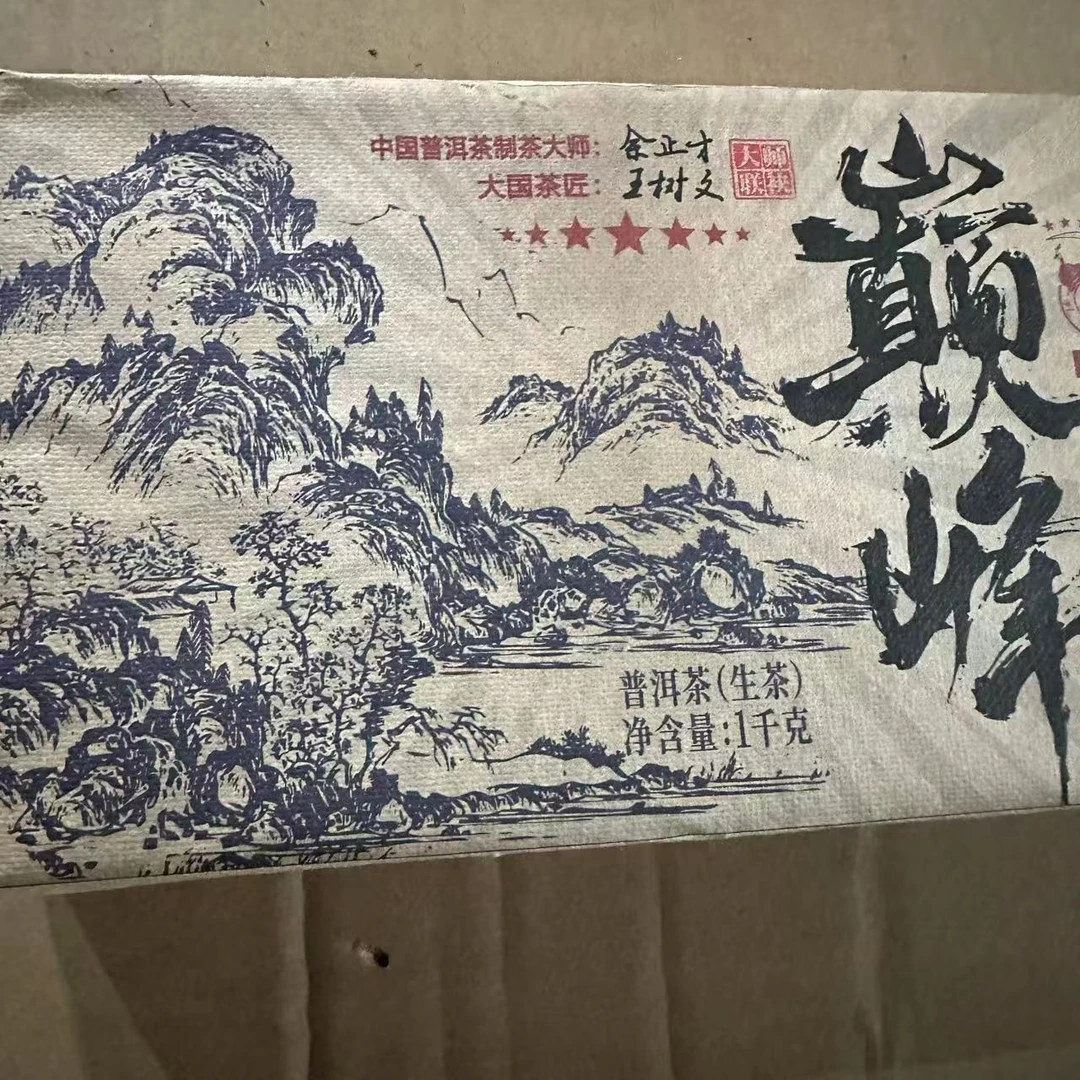 中国普洱茶制茶大师：余正才
大国茶匠：王树文
大师
联袂
巅峰
普洱茶（生茶）
净含量：1千克